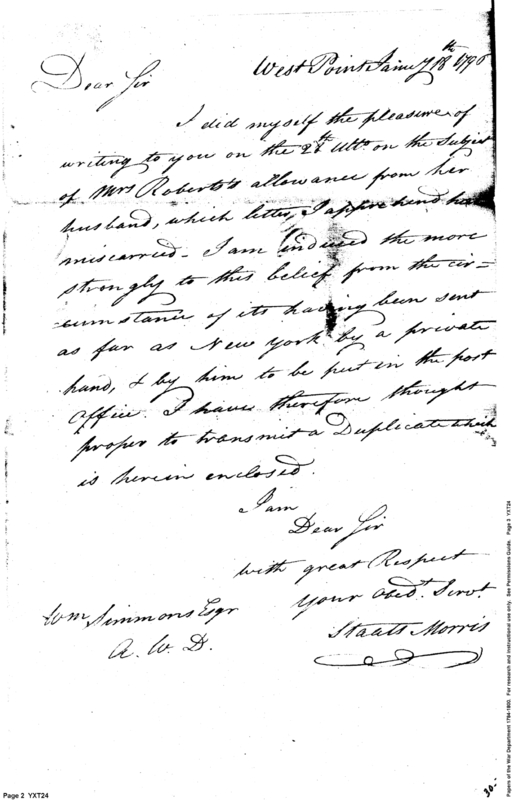 West Point Jany 18th 1796
Dear Sir
I did myself the pleasure of
writing to you on the 26th Ulto on the Subject
of Mrs Roberts's allowance from her
husband, which letter, I apprehend has
miscarried - I am induced the more
strongly to this belief from the cir=
=cumstance of its having been sent
as far as New York by a private
hand, & by him to be put in the post
office. I have therefore thought
proper to transmit a Duplicate which
is herein enclosed.
I am
Dear Sir
with great Respect
Your obedt. Servt.
Staats Morris
Wm Simmons Esqr
A. W. D.
30-
Page 2 YXT24
Papers of the War Department 1784-1800. For research and instructional use only. See Permissions Guide. Page 3 YXT24